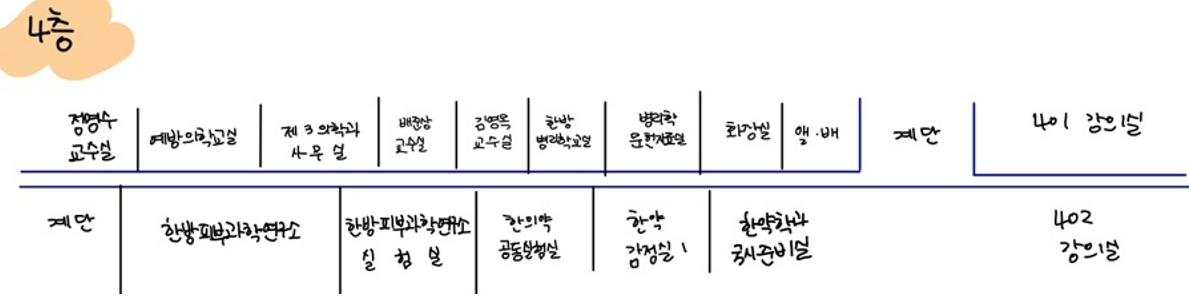 4층
정명수
교수실
예방의학교실
제3의학과
사무실
배준상
교수실
김영목
교수실
한방
병리학교실
병리학
문헌자료실
화장실
엘·배
계단
401 강의실
계단
한방피부과학연구소
한방피부과학연구소
실험실
한의약
공동실험실
한약
감정실 1
한약학과
국시준비실
402
강의실